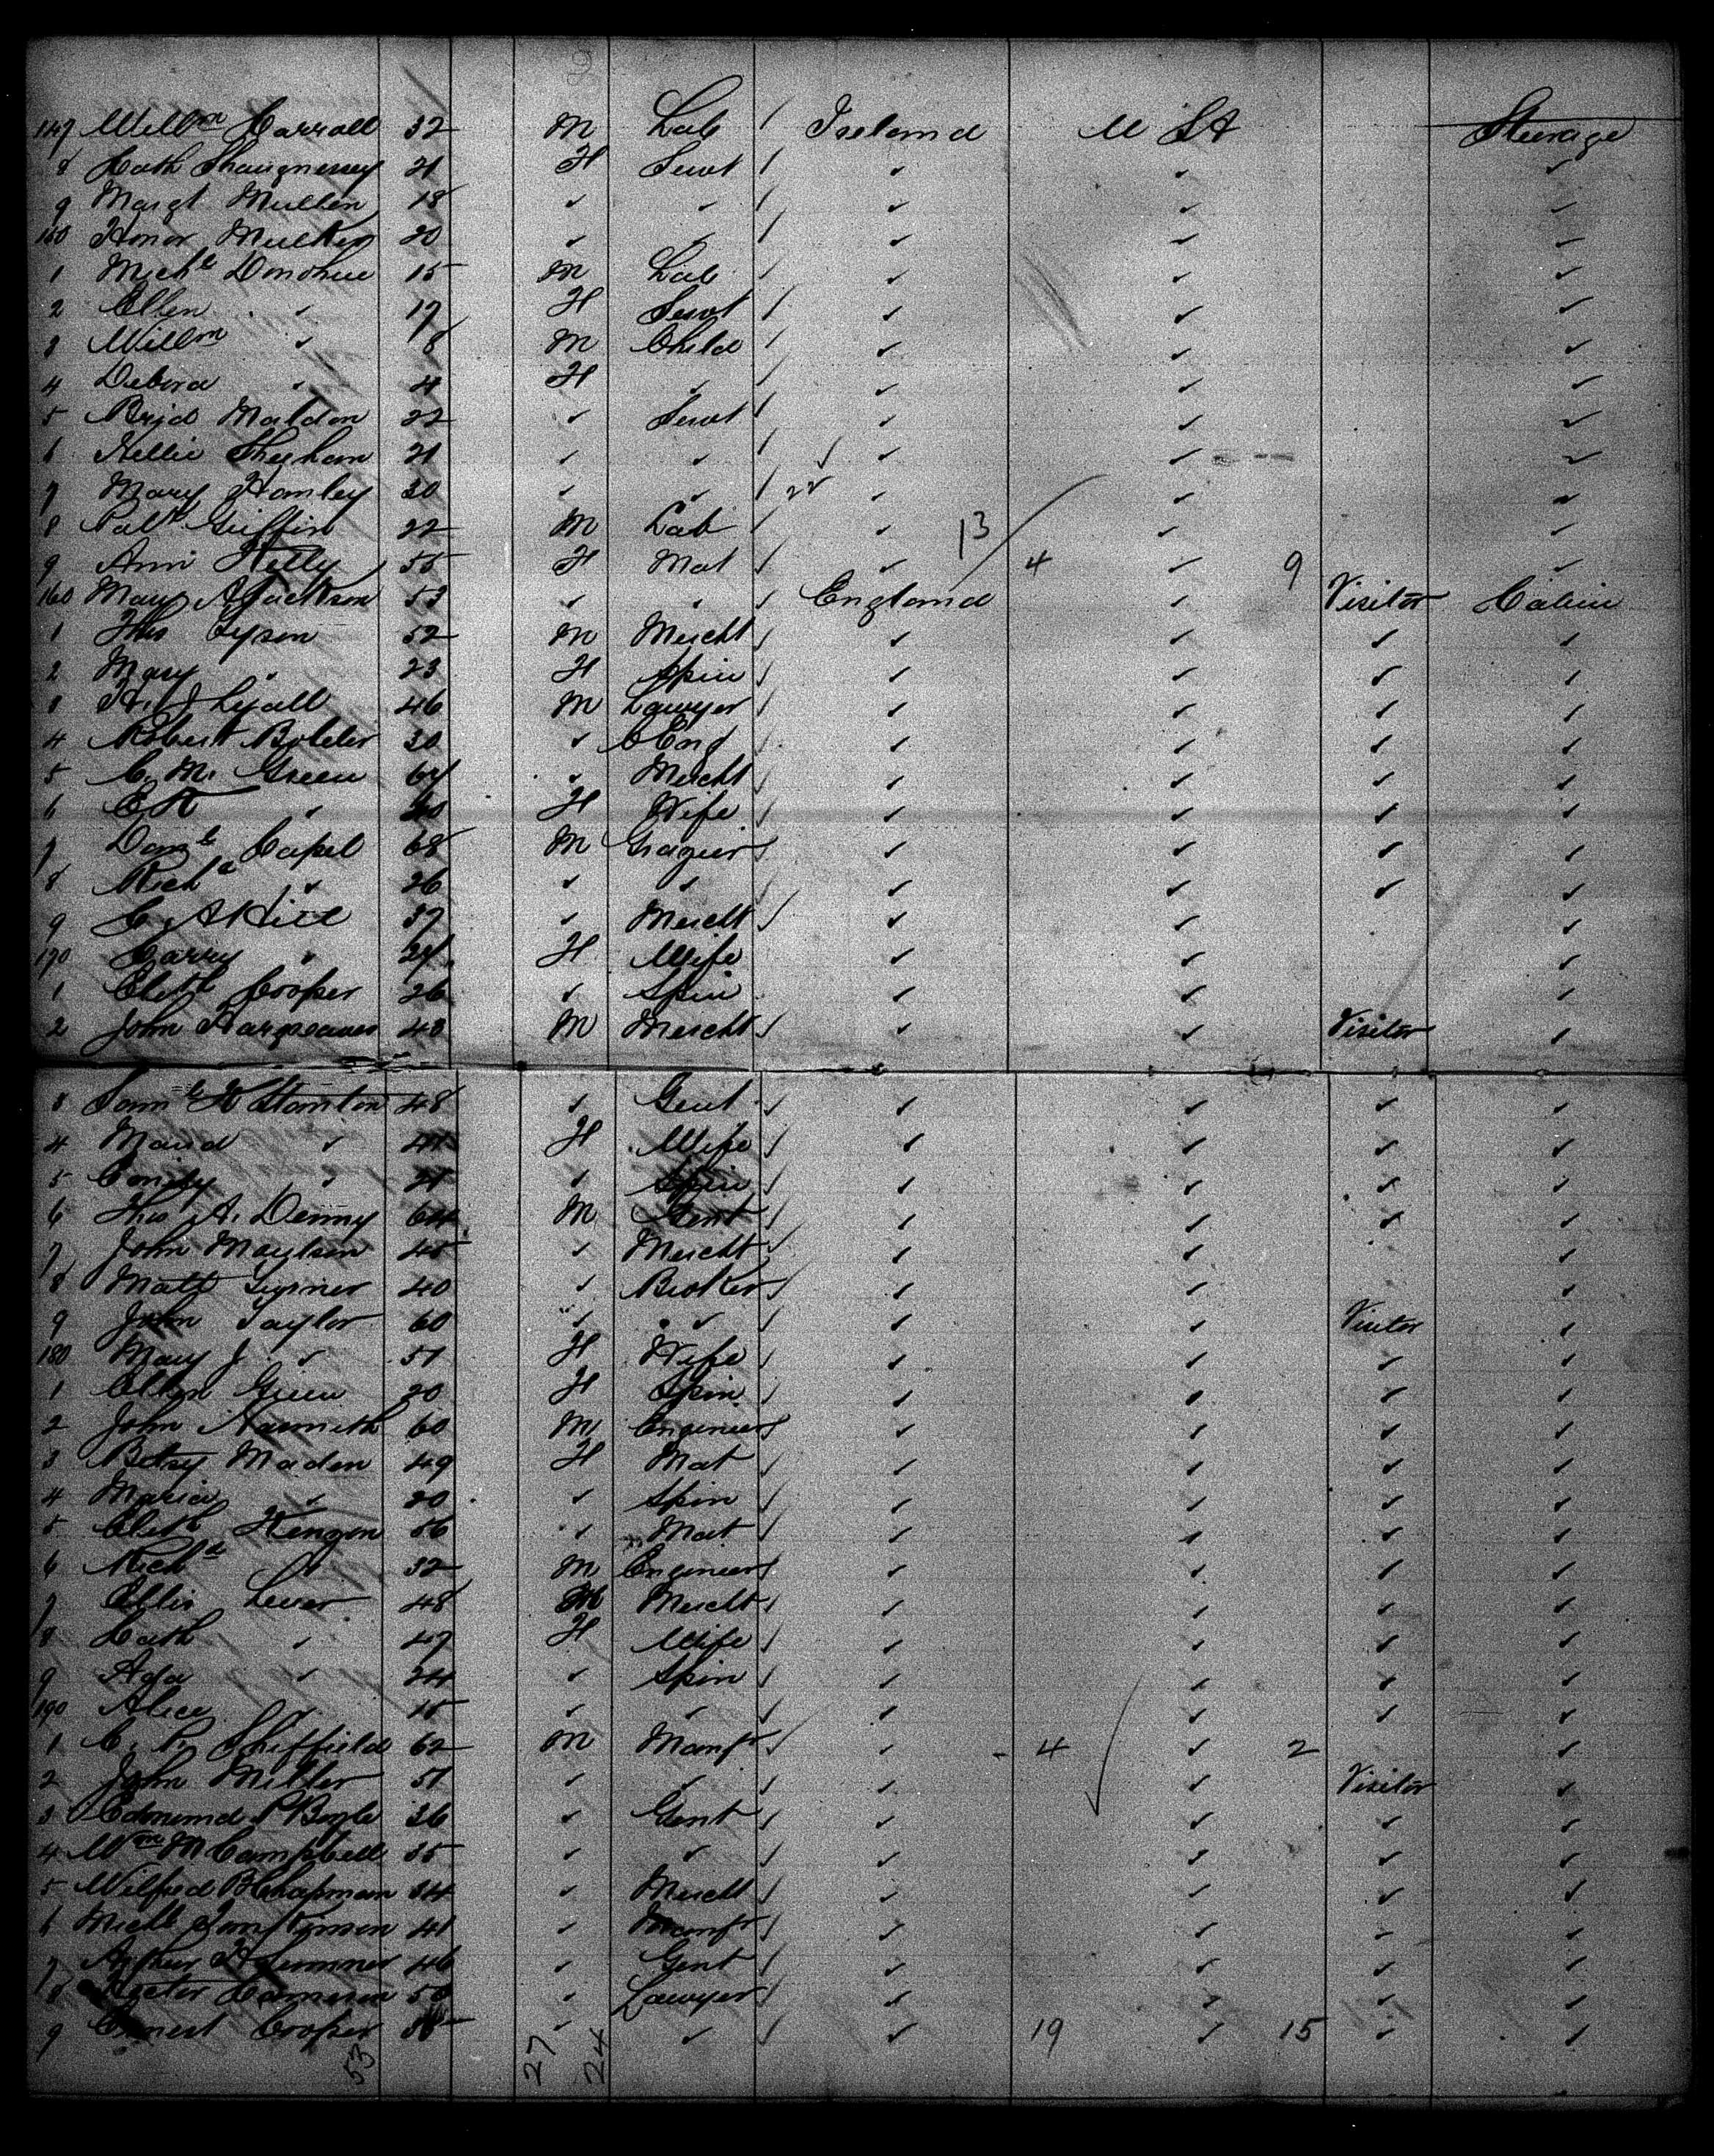 147 Willm Carroll 32 M Lab Ireland U St Steerage
8 Cath Shaugnessy 21 F Servt ✓ ✓ ✓
9 Margt Mullen 18 ✓ ✓ ✓ ✓ ✓
150 Honor Mulker 20 ✓ ✓ ✓ ✓ ✓
1 Michl Donohue 15 M Lab ✓ ✓ ✓
2 Ellen ✓ 17 F Servt ✓ ✓ ✓
3 Willm ✓ 8 M Child ✓ ✓ ✓
4 Debora ✓ 4 F ✓ ✓ ✓ ✓
5 Brid Maldon 22 ✓ Servt ✓ ✓ ✓
6 Nellie Sheehan 21 ✓ ✓ ✓ ✓ ✓
7 Mary Hanley 30 ✓ ✓ 22 ✓ ✓ ✓
8 Patk Griffin 22 M Lab ✓ 13 ✓ ✓
9 Ann Kelly 55 F Mat ✓ 4 ✓ 9 ✓
160 Mary A Jackson 53 ✓ ✓ England ✓ Visitor Cabin
1 Thos Tyson 52 M Mercht ✓ ✓ ✓ ✓
2 Mary ✓ 23 F Spin ✓ ✓ ✓ ✓
3 Lyall 46 M Lawyer ✓ ✓ ✓ ✓
4 Robert 30 ✓ C Eng ✓ ✓ ✓ ✓
5 C. M. Green 64 ✓ Mercht ✓ ✓ ✓ ✓
6 ✓ 40 F Wife ✓ ✓ ✓ ✓
7 Danl Capel 68 M Grazier ✓ ✓ ✓ ✓
8 Richd ✓ 26 ✓ ✓ ✓ ✓ ✓ ✓
9 C. A Hill 37 ✓ Mercht ✓ ✓ ✓
170 Carry ✓ 27 F Wife ✓ ✓ ✓
1 Elizth Cooper 26 ✓ Spin ✓ ✓ ✓
2 John Hargreaves 43 M Mercht ✓ ✓ Visitor ✓
3 Saml Stanton 48 ✓ Gent ✓ ✓ ✓ ✓
4 Maud ✓ 41 F Wife ✓ ✓ ✓ ✓
5 Emily ✓ 21 ✓ Spin ✓ ✓ ✓ ✓
6 Thos A. Denny 64 M Gent ✓ ✓ ✓ ✓
7 John 45 ✓ Mercht ✓ ✓ ✓
8 Matt 40 ✓ Broker ✓ ✓ ✓
9 John Taylor 60 ✓ ✓ ✓ ✓ Visitor ✓
180 Mary J ✓ 51 F Wife ✓ ✓ ✓ ✓
1 Ellen Green 20 F Spin ✓ ✓ ✓ ✓
2 John Nasmith 60 M Engineer ✓ ✓ ✓ ✓
3 Betsy Maden 49 F Mat ✓ ✓ ✓ ✓
4 Maria ✓ 20 ✓ Spin ✓ ✓ ✓ ✓
5 Elizth Kenyon 56 ✓ Mat ✓ ✓ ✓ ✓
6 Richd ✓ 32 M Engineer ✓ ✓ ✓ ✓
7 Ellis Lever 48 M Mercht ✓ ✓ ✓ ✓
8 Cath ✓ 47 F Wife ✓ ✓ ✓ ✓
9 Ada ✓ 24 ✓ Spin ✓ ✓ ✓ ✓
190 Alice ✓ 15 ✓ ✓ ✓ ✓ ✓ ✓
1 C. P. Sheffield 62 M Manfr ✓ 4 ✓ 2 ✓
2 John Miller 51 ✓ ✓ ✓ ✓ Visitor ✓
3 Edmund P Boyle 36 ✓ Gent ✓ ✓ ✓ ✓
4 Wm M Campbell 35 ✓ ✓ ✓ ✓ ✓ ✓
5 Wilfred B Chapman 34 ✓ Mercht ✓ ✓ ✓ ✓
6 Michl Tomkinson 41 ✓ Manfr ✓ ✓ ✓ ✓
7 Arthur H Sumner 46 ✓ Gent ✓ ✓ ✓ ✓
8 Hector Cameron 50 ✓ Lawyer ✓ ✓ ✓ ✓
9 Ernest Cooper 35 ✓ ✓ ✓ 19 ✓ 15 ✓ ✓
53 27 24